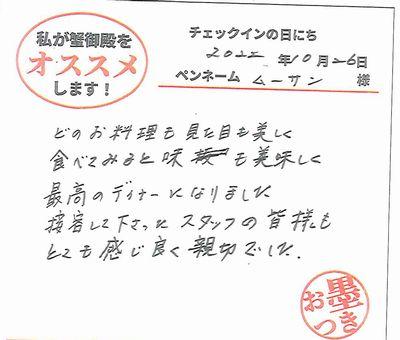 私が蟹御殿を
オススメ
します！
チェックインの日にち
2022年10月26日
ペンネーム ムーサン 様
どのお料理も見た目も美しく
食べてみると味も美味しく
最高のディナーになりました
接客して下さったスタッフの皆様も
とても感じ良く親切でした.
お墨つき